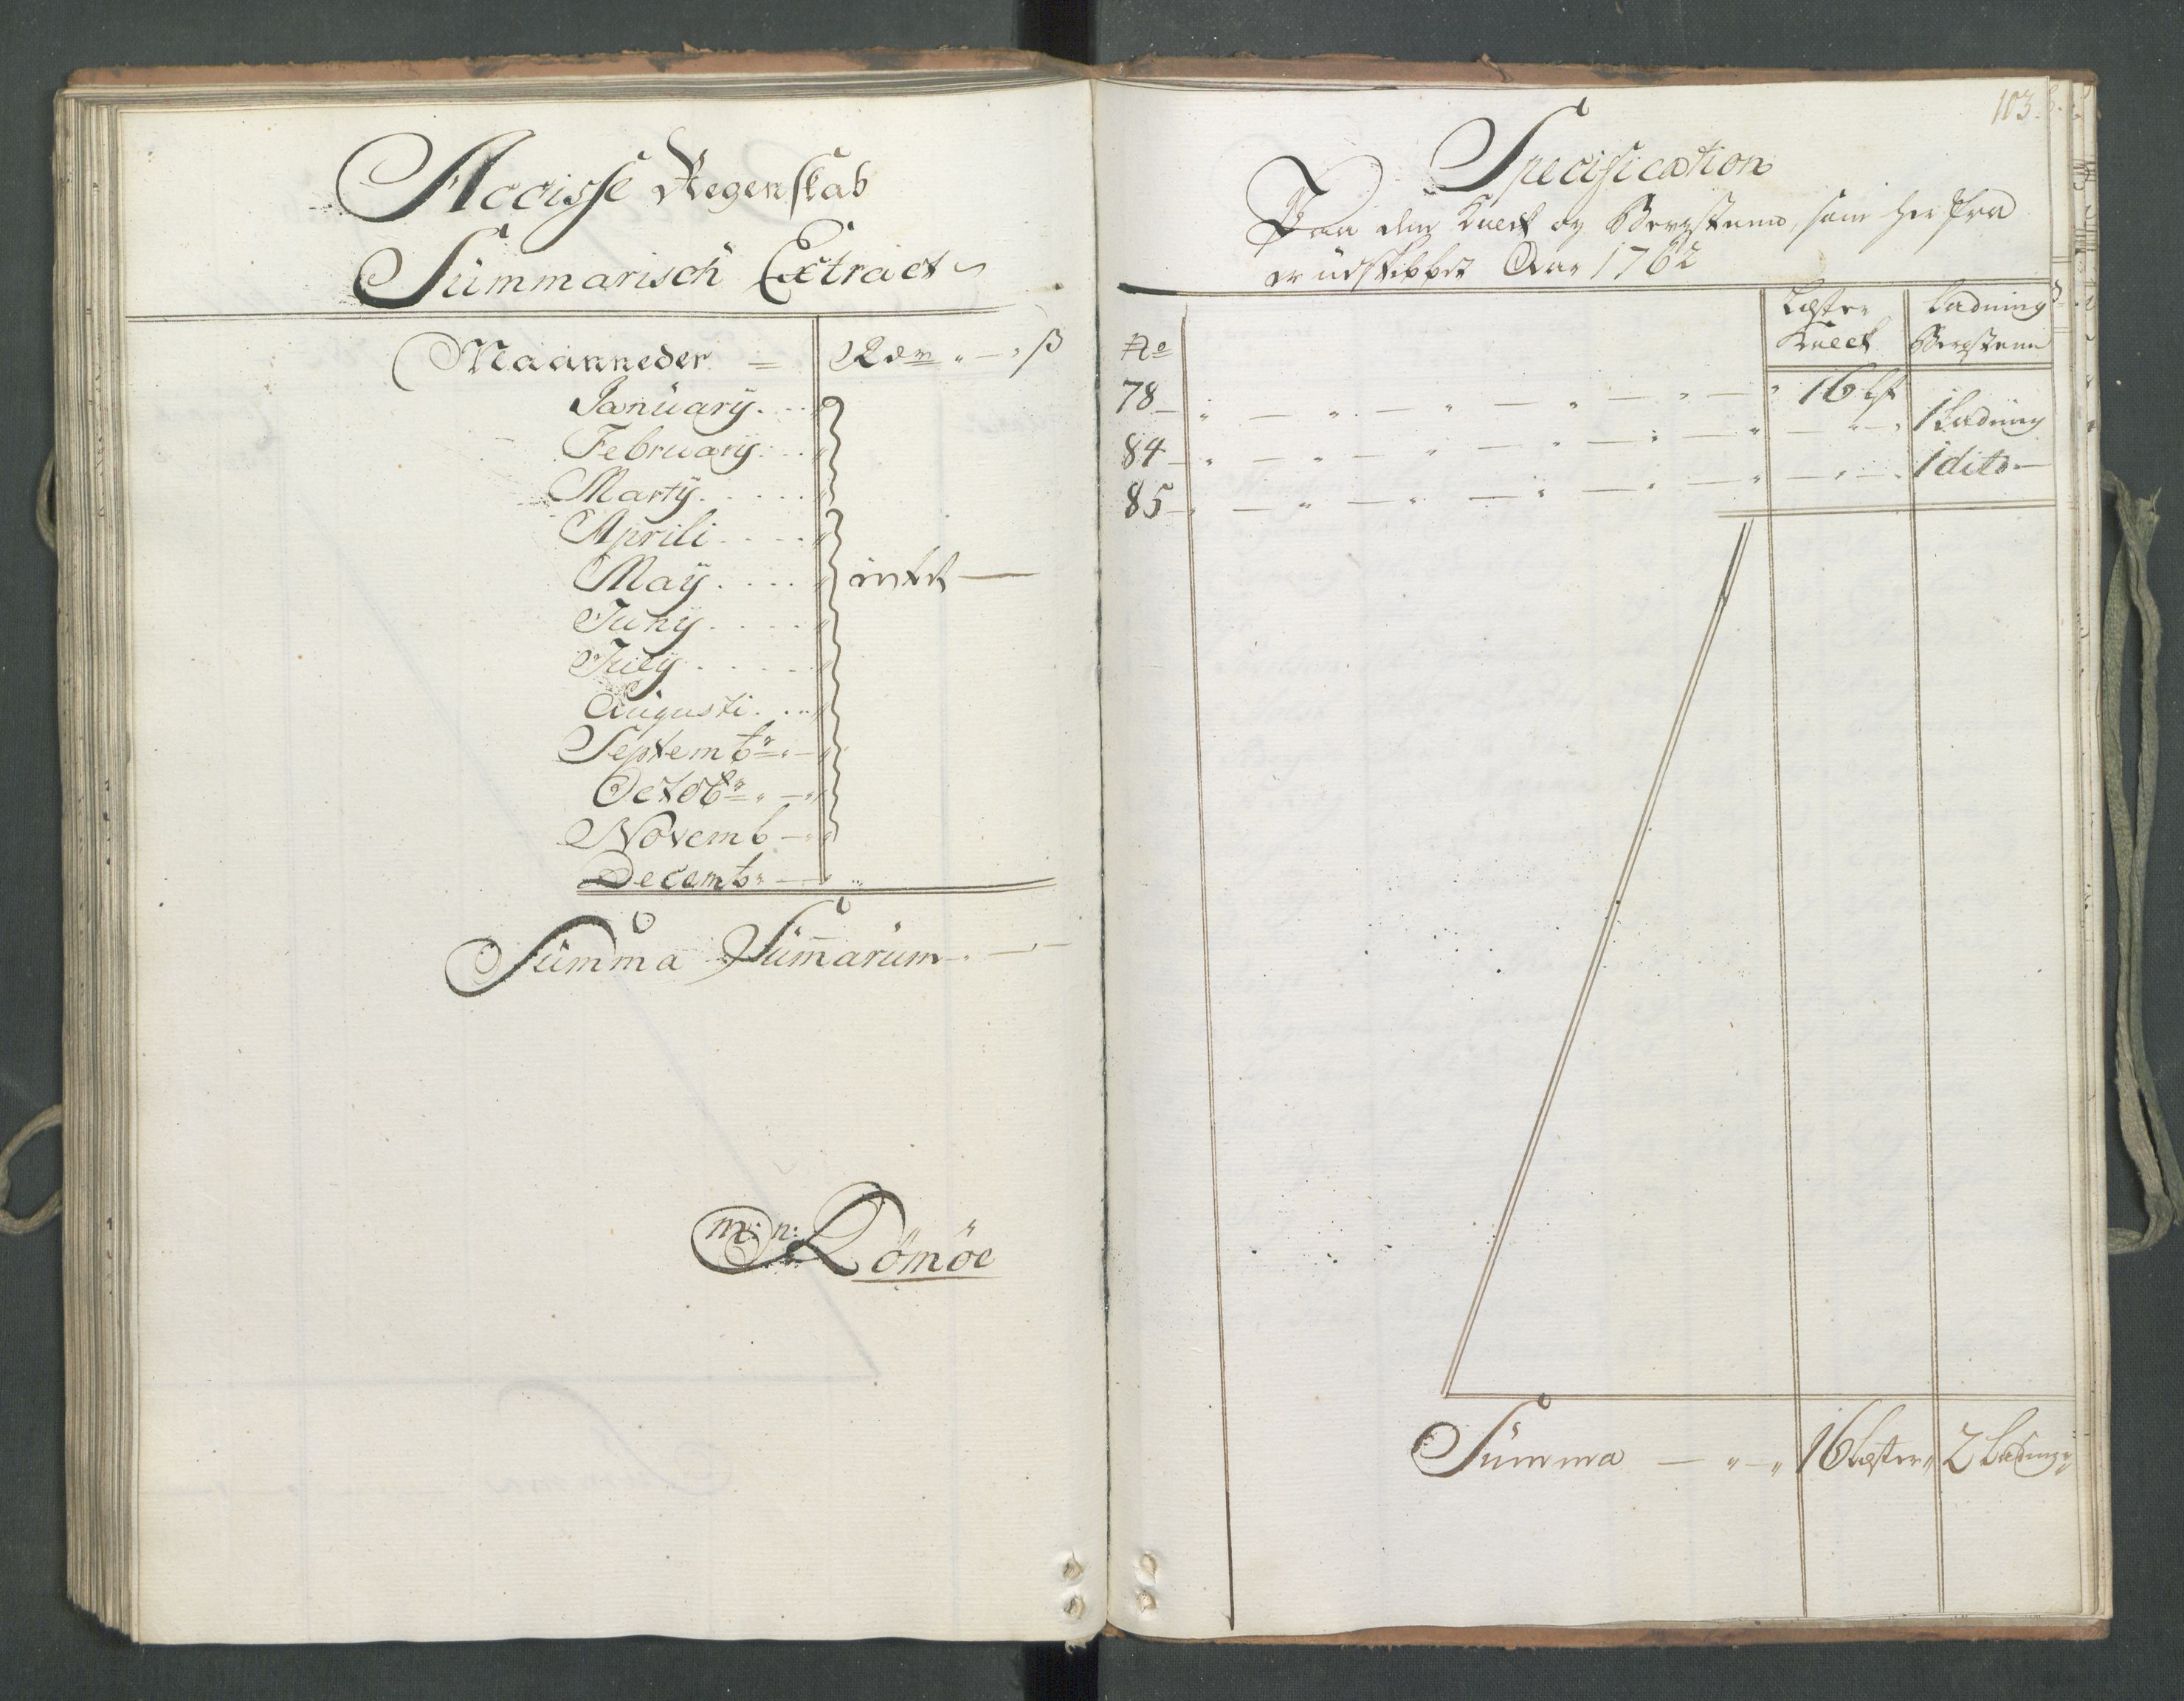 Accisse Regenskab
Summarisch Extract
Maanneder = Rdr " — " ß
January
February
Marty
Aprili
May intet —
Juny
July
Augusti
Septembr
Octobr
Novemb
Decembr
Summa Summarum
m: n: Römöe
103.
Specification
Paa den og som her fra
er udskibbet Aar 1762
No Læster Ladning
78 16 Lst
84 1 Ladning
85 1 dito —
Summa — " — " 16 Læster " 2 Ladning "